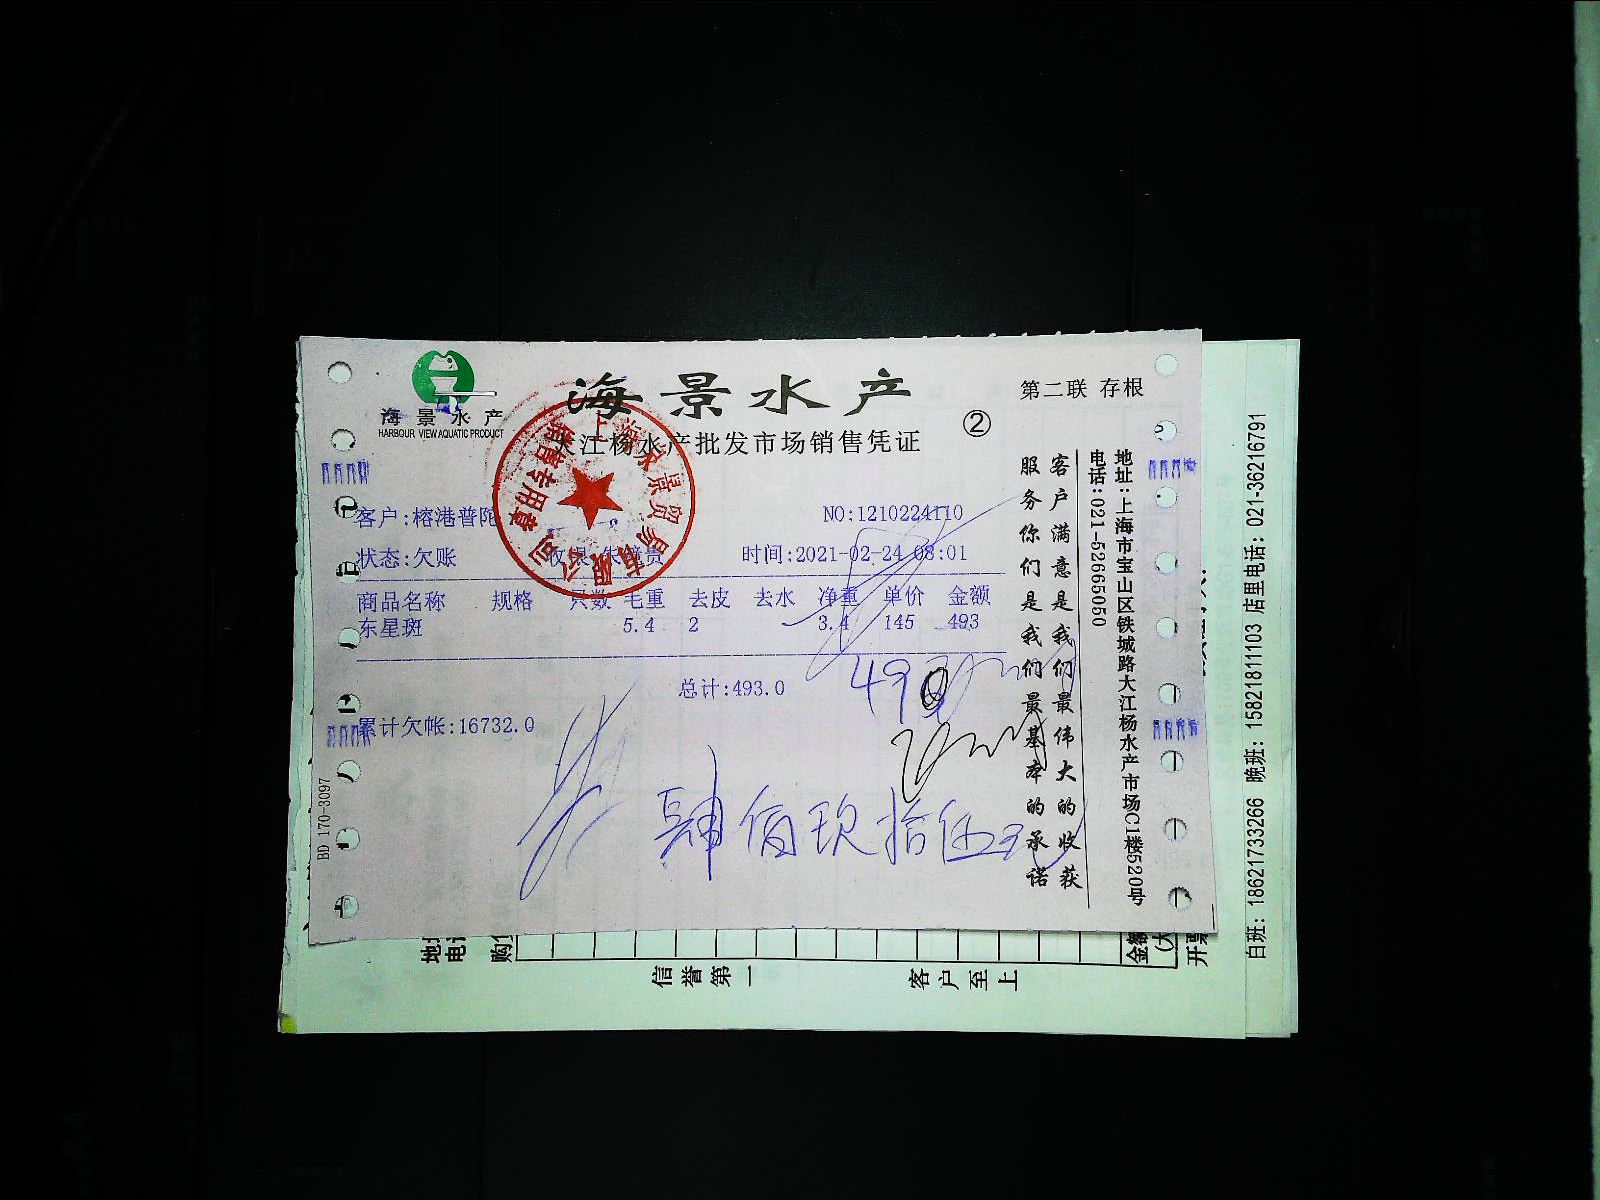 海景水产
HARBOUR VIEW AQUATIC PRODUCT
海景水产
大江杨水产批发市场销售凭证
②
第二联 存根
客户:榕港普陀
NO:1210224110
状态:欠账
时间:2021-02-24 08:01
商品名称 规格 只数 毛重 去皮 去水 净重 单价 金额
东星斑 5.4 2 3.4 145 493
总计:493.0
累计欠帐:16732.0
肆佰玖拾伍元
BD 170-3097
客户满意是我们最伟大的收获
服务你们是我们最基本的承诺
地址:上海市宝山区铁城路大江杨水产市场C1楼520号
电话:021-52665050
销售专用章
白班: 18621733266 晚班: 15821811103 店里电话: 021-36216791
信誉第一
客户至上